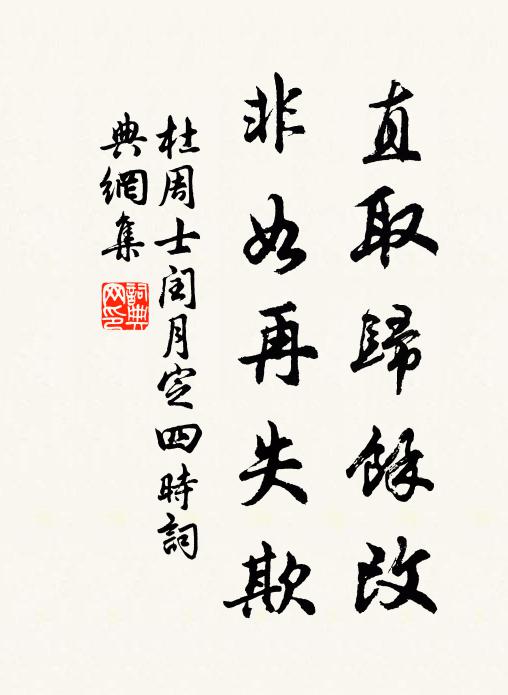 直取歸餘改
非如再失欺
杜周士閏月定四時詞
典網集
詞典網印